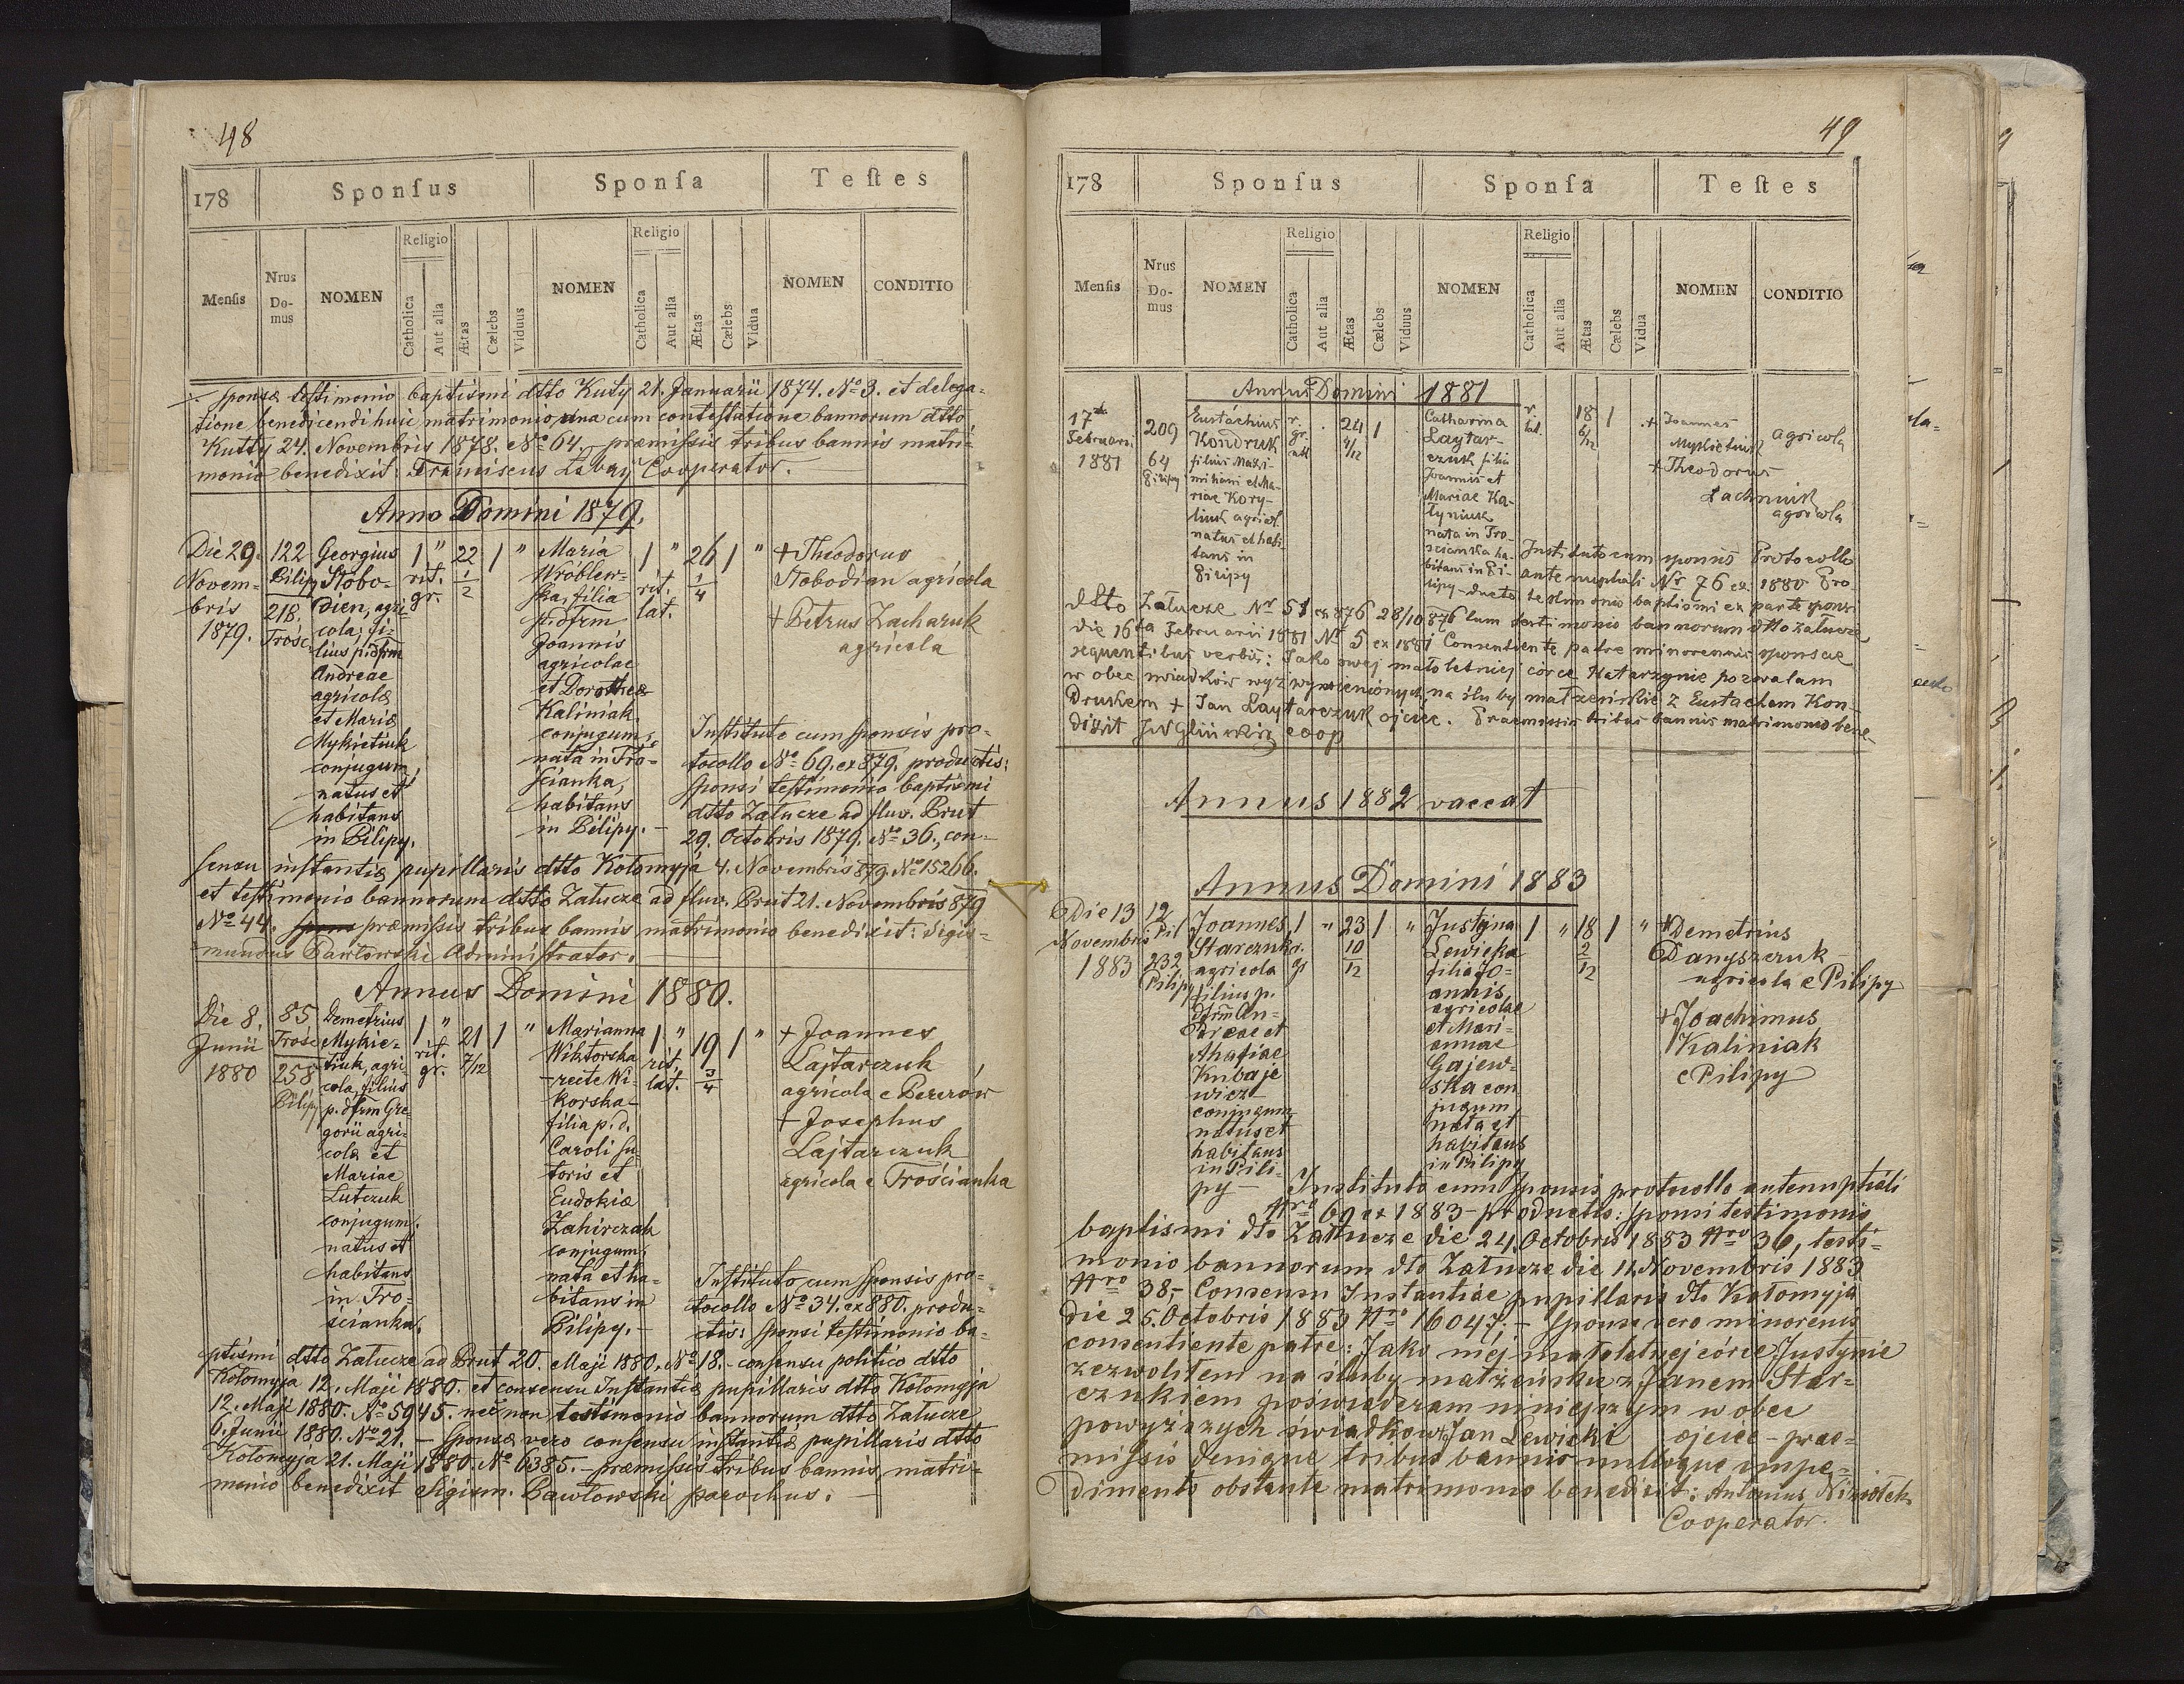 48
178 Sponſus Sponſa Teſtes
Menſis Nrus Do- mus NOMEN Religio Catholica Aut alia Ætas Cælebs Viduus NOMEN Religio Catholica Aut alia Ætas Cælebs Vidua NOMEN CONDITIO
sponsæ testimonio baptismi dtto Kuty 21. Januarii 1874. No 3. et delega-
tione benedicendi huic matrimonio una cum contestatione bannorum dtto
Kutty 24. Novembris 1878. No 64. præmissis tribus bannis matri-
monio benedixit: Franciscus Cooperator.
Anno Domini 1879.
Die 29. Novem- bris 1879.
122 Pilipy 218. Trośc.
Georgius
Słobo-
dien, agri-
cola, fi-
lius p. dfm
Andreae
agricolæ
et Mariæ
Mykietiuk
conjugum,
natus et
habitans
in Pilipy.
1 " rit. gr. 22 1/2 1 "
Maria
Wróblew-
ska, filia
p. dfrm
Joannis
agricolae
et Dorotheæ
Kaliniak
conjugum,
nata in Tro-
ścianka,
habitans
in Pilipy. -
1 " rit. lat. 26 1/4 1 "
+ Theodorus
Słobodian agricola
+ Petrus Zacharuk
agricola
Instituto cum sponsis pro-
tocollo No 69. ex 879. productis:
sponsi testimonio baptismi
dtto Załucze ad fluv. Prut
29. Octobris 1879. No 36., con-
sensu instantiæ pupillaris dtto Kołomyja 4. Novembris 879. No 15266.
et testimonio bannorum dtto Załucze ad fluv. Prut 21. Novembris 879
No 44. præmissis tribus bannis matrimonio benedixit: Sigis-
mundus Pawłowski Administrator.
Annus Domini 1880.
Die 8. Junii 1880
85 Trośc 258 Pilipy
Demetrius
Mykie-
tiuk, agri-
cola, filius
p. dfrm Gre-
gorii agri-
colæ et
Mariae
Lutczuk
conjugum,
natus et
habitans
in Tro-
ścianka,
1 " rit. gr. 21 7/12 1 "
Marianna
Wiktorska
recte Wi-
korska
filia p. d.
Caroli su-
toris et
Eudokiæ
Zahirczak
conjugum,
nata et ha-
bitans in
Pilipy. -
1 " rit. lat. 19 3/4 1 "
+ Joannes
Lajtarczuk
agricola e Pererów
+ Josephus
Lajtarczuk
agricola e Trościanka
Instituto cum sponsis pro-
tocollo No 34. ex 880. produ-
ctis: sponsi testimonio ba-
ptismi dtto Załucze ad Prut 20. Maji 1880. No 18. - consensu politico dtto
Kołomyja 12. Maji 1880. et consensu Instantiæ pupillaris dtto Kołomyja
12. Maji 1880. No 5945. nec non testimonio bannorum dtto Załucze
6. Junii 1880. No 21. - Sponsæ vero consensu instantiæ pupillaris dtto
Kołomyja 21. Maji 1880. No 6385. - præmissis tribus bannis matri-
monio benedixit Sigism. Pawłowski parochus. -
49
178 Sponſus Sponſa Teſtes
Menſis Nrus Do- mus NOMEN Religio Catholica Aut alia Ætas Cælebs Viduus NOMEN Religio Catholica Aut alia Ætas Cælebs Vidua NOMEN CONDITIO
Annus Domini 1881
17 Februarii 1881
209 64 Pilipy
Eustachius
Kondruk
filius Maxi-
miliani et Ma-
riae Kory-
liuk agricol.
natus et habi-
tans in
Pilipy
r. gr. 24 4/12 1
Catharina
Laytar-
czuk filia
Joannis et
Mariae Ka-
łyniuk
nata in Tro-
scianka ha-
bitans in Pi-
lipy
r. lat. 18 6/12 1
+ Joannes
Mykietiuk agricola
+ Theodorus
Lachniuk
agricola
Instituto cum sponsis Protocollo
antenuptiali Nr 76 ex 1880 Pro-
ducto testimonio baptismi ex parte sponsi
dtto Załucze Nr 51 ex 876 28/10 876 tum testimonio bannorum dtto Załucze
die 16ta Februarii 1881 Nr 5 ex 1881 Consentiente patre minorennis sponsae
sequentibus verbis: Jako swej małoletniej córce Katarzynie pozwalam
w obec świadków wyż wymienionych na śluby małżeńskie z Eustachem Kon-
drukem + Jan Laytarczuk ojciec. Praemissis tribus bannis matrimonio bene-
dixit coop
Annus 1882 vaccat
Annus Domini 1883
Die 13 Novembris 1883
12 Pil 232 Pilipy
Joannes
Starczuk
agricola
filius p.
dfrm An-
dreae et
Ahafiae
Kubaje
wicz
conjugum
natus et
habitans
in Pili-
py -
1 " r. gr 23 10/12 1 "
Justyna
Lewicka
filia Jo-
annis
agricolae
et Mari-
annae
Gajew-
ska con
jugum
nata et
habitans
in Pilipy
1 " 18 2/12 1 "
+ Demetrius
Danyszczuk
agricola e Pilipy
+ Joachimus
Kaliniak
e Pilipy
Instituto cum sponsis protocollo antenuptiali
Nro 60 ex 1883 - productis: sponsi testimonio
baptismi dto Załucze die 24. Octobris 1883 Nro 36, testi-
monio bannorum dto Załucze die 11. Novembris 1883
Nro 38, - Consensu Instantiae pupillaris dto Kołomyja
die 25. Octobris 1883 Nro 16047. - Sponsa vero minorenis
consentiente patre: Jako mej małoletnej córce Justynie
zezwoliłem na śluby małżeńskie z Janem Star-
czukiem poświadczam niniejszym w obec
powyższych świadków + Jan Lewicki ojciec - prae-
missis denique tribus bannis nulloque impe-
dimento obstante matrimonio benedixit: Antonius
Cooperator.